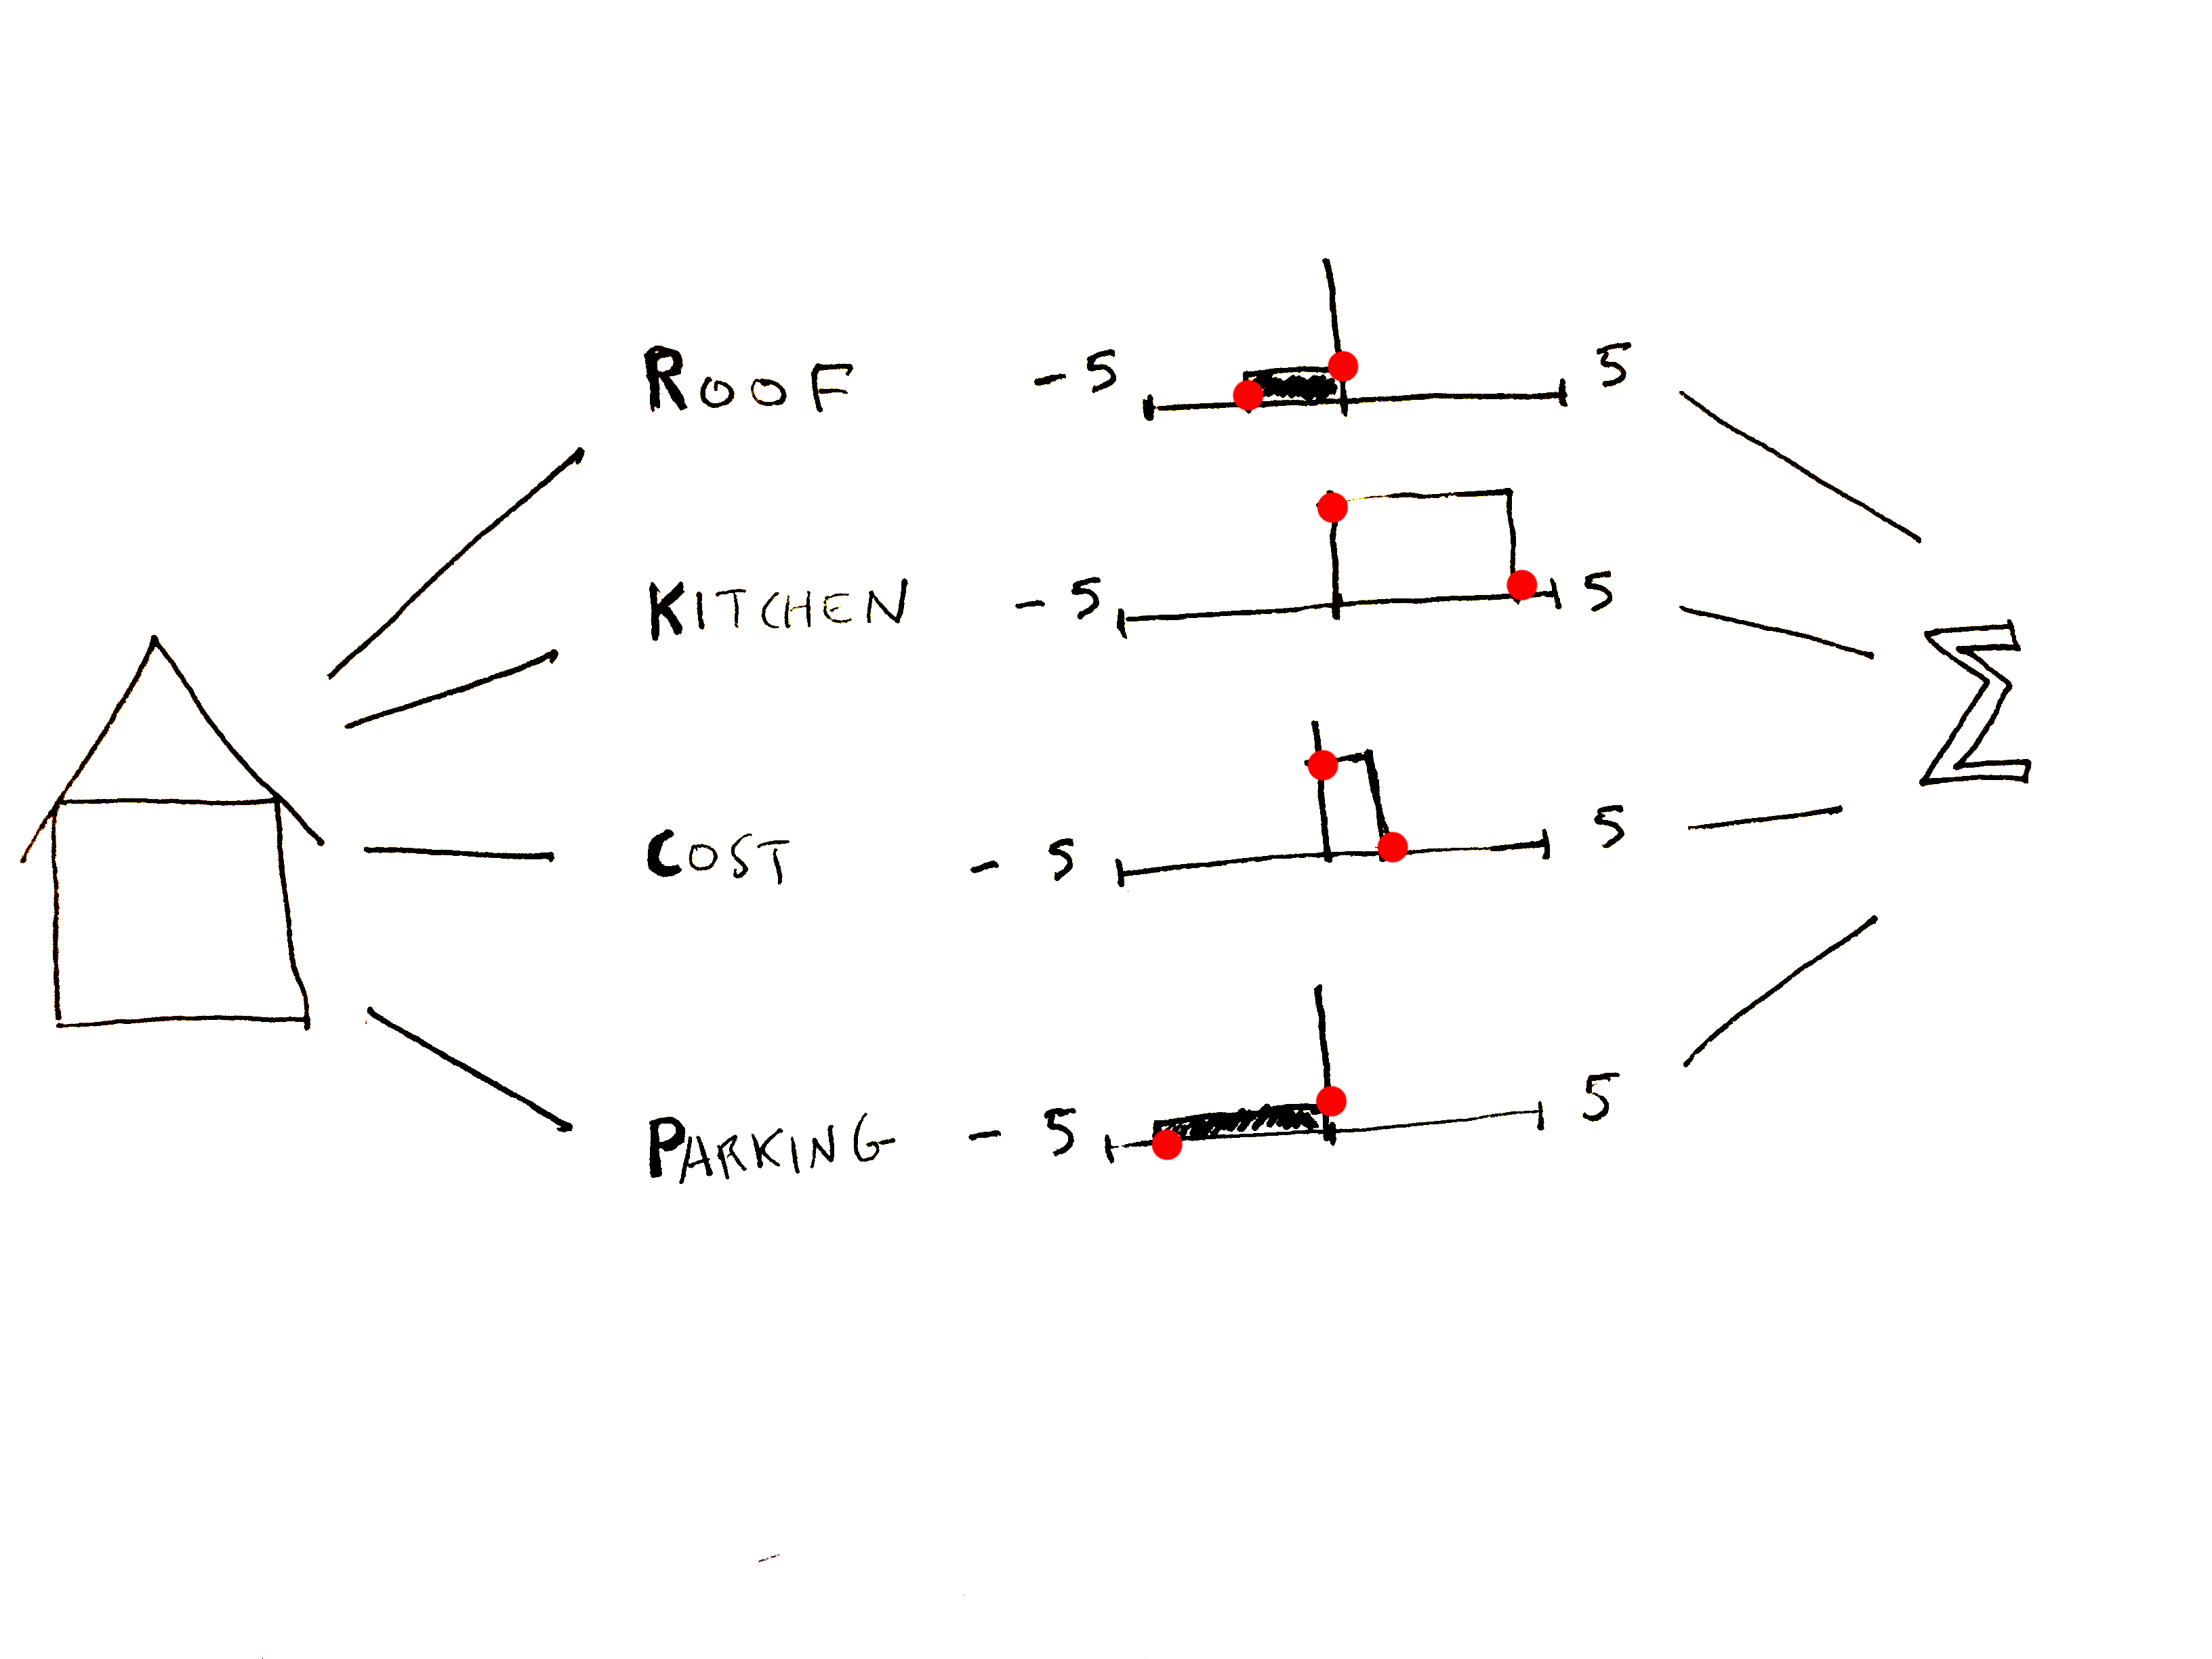 ROOF - 5 5
KITCHEN - 5 5
Σ
COST - 5 5
PARKING - 5 5